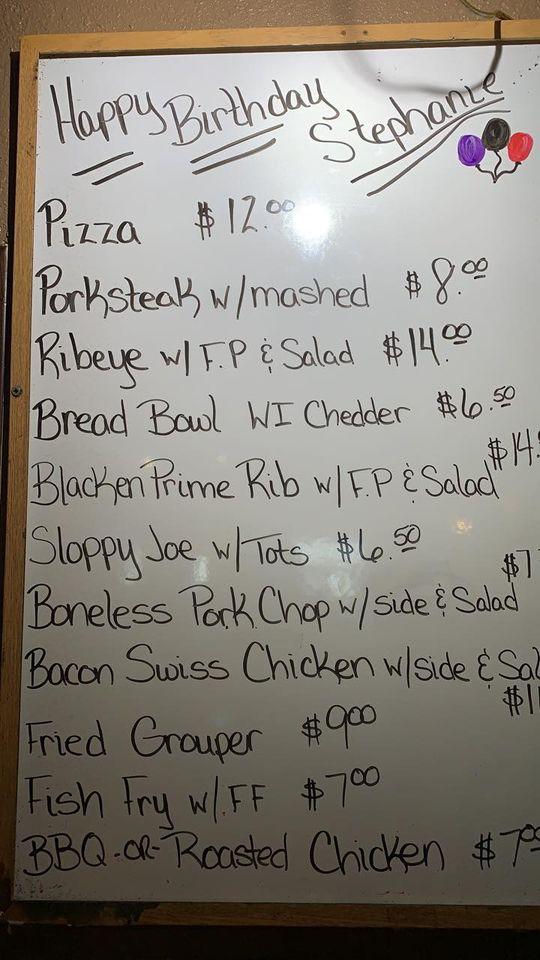 Happy Birthday Stephanie
Pizza $12.00
Porksteak w/mashed $8.00
Ribeye w/ F.P & Salad $14.00
Bread Bowl WI Chedder $6.50
$14.
Blacken Prime Rib w/ F.P & Salad
Sloppy Joe w/Tots $6.50
$7
Boneless Pork Chop w/side & Salad
Bacon Swiss Chicken w/side &
Fried Grouper $900
Fish Fry w/.FF $700
BBQ-OR-Roasted Chicken $700